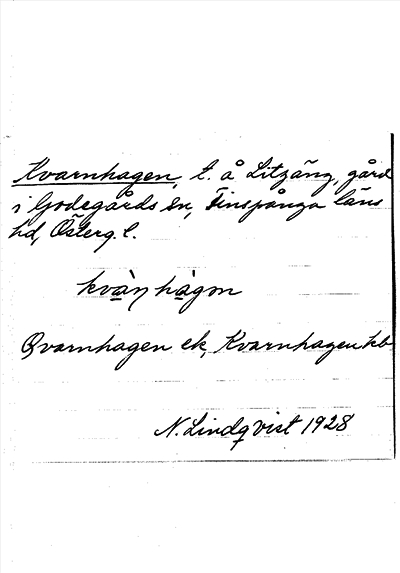 Kvarnhagen, t. å Litzäng, gård
i Godegårds sn, Finspånga läns
hd, Österg. l.
kvàṇ hàgon
Qvarnhagen ek, Kvarnhagen kb
N. Lindqvist 1928